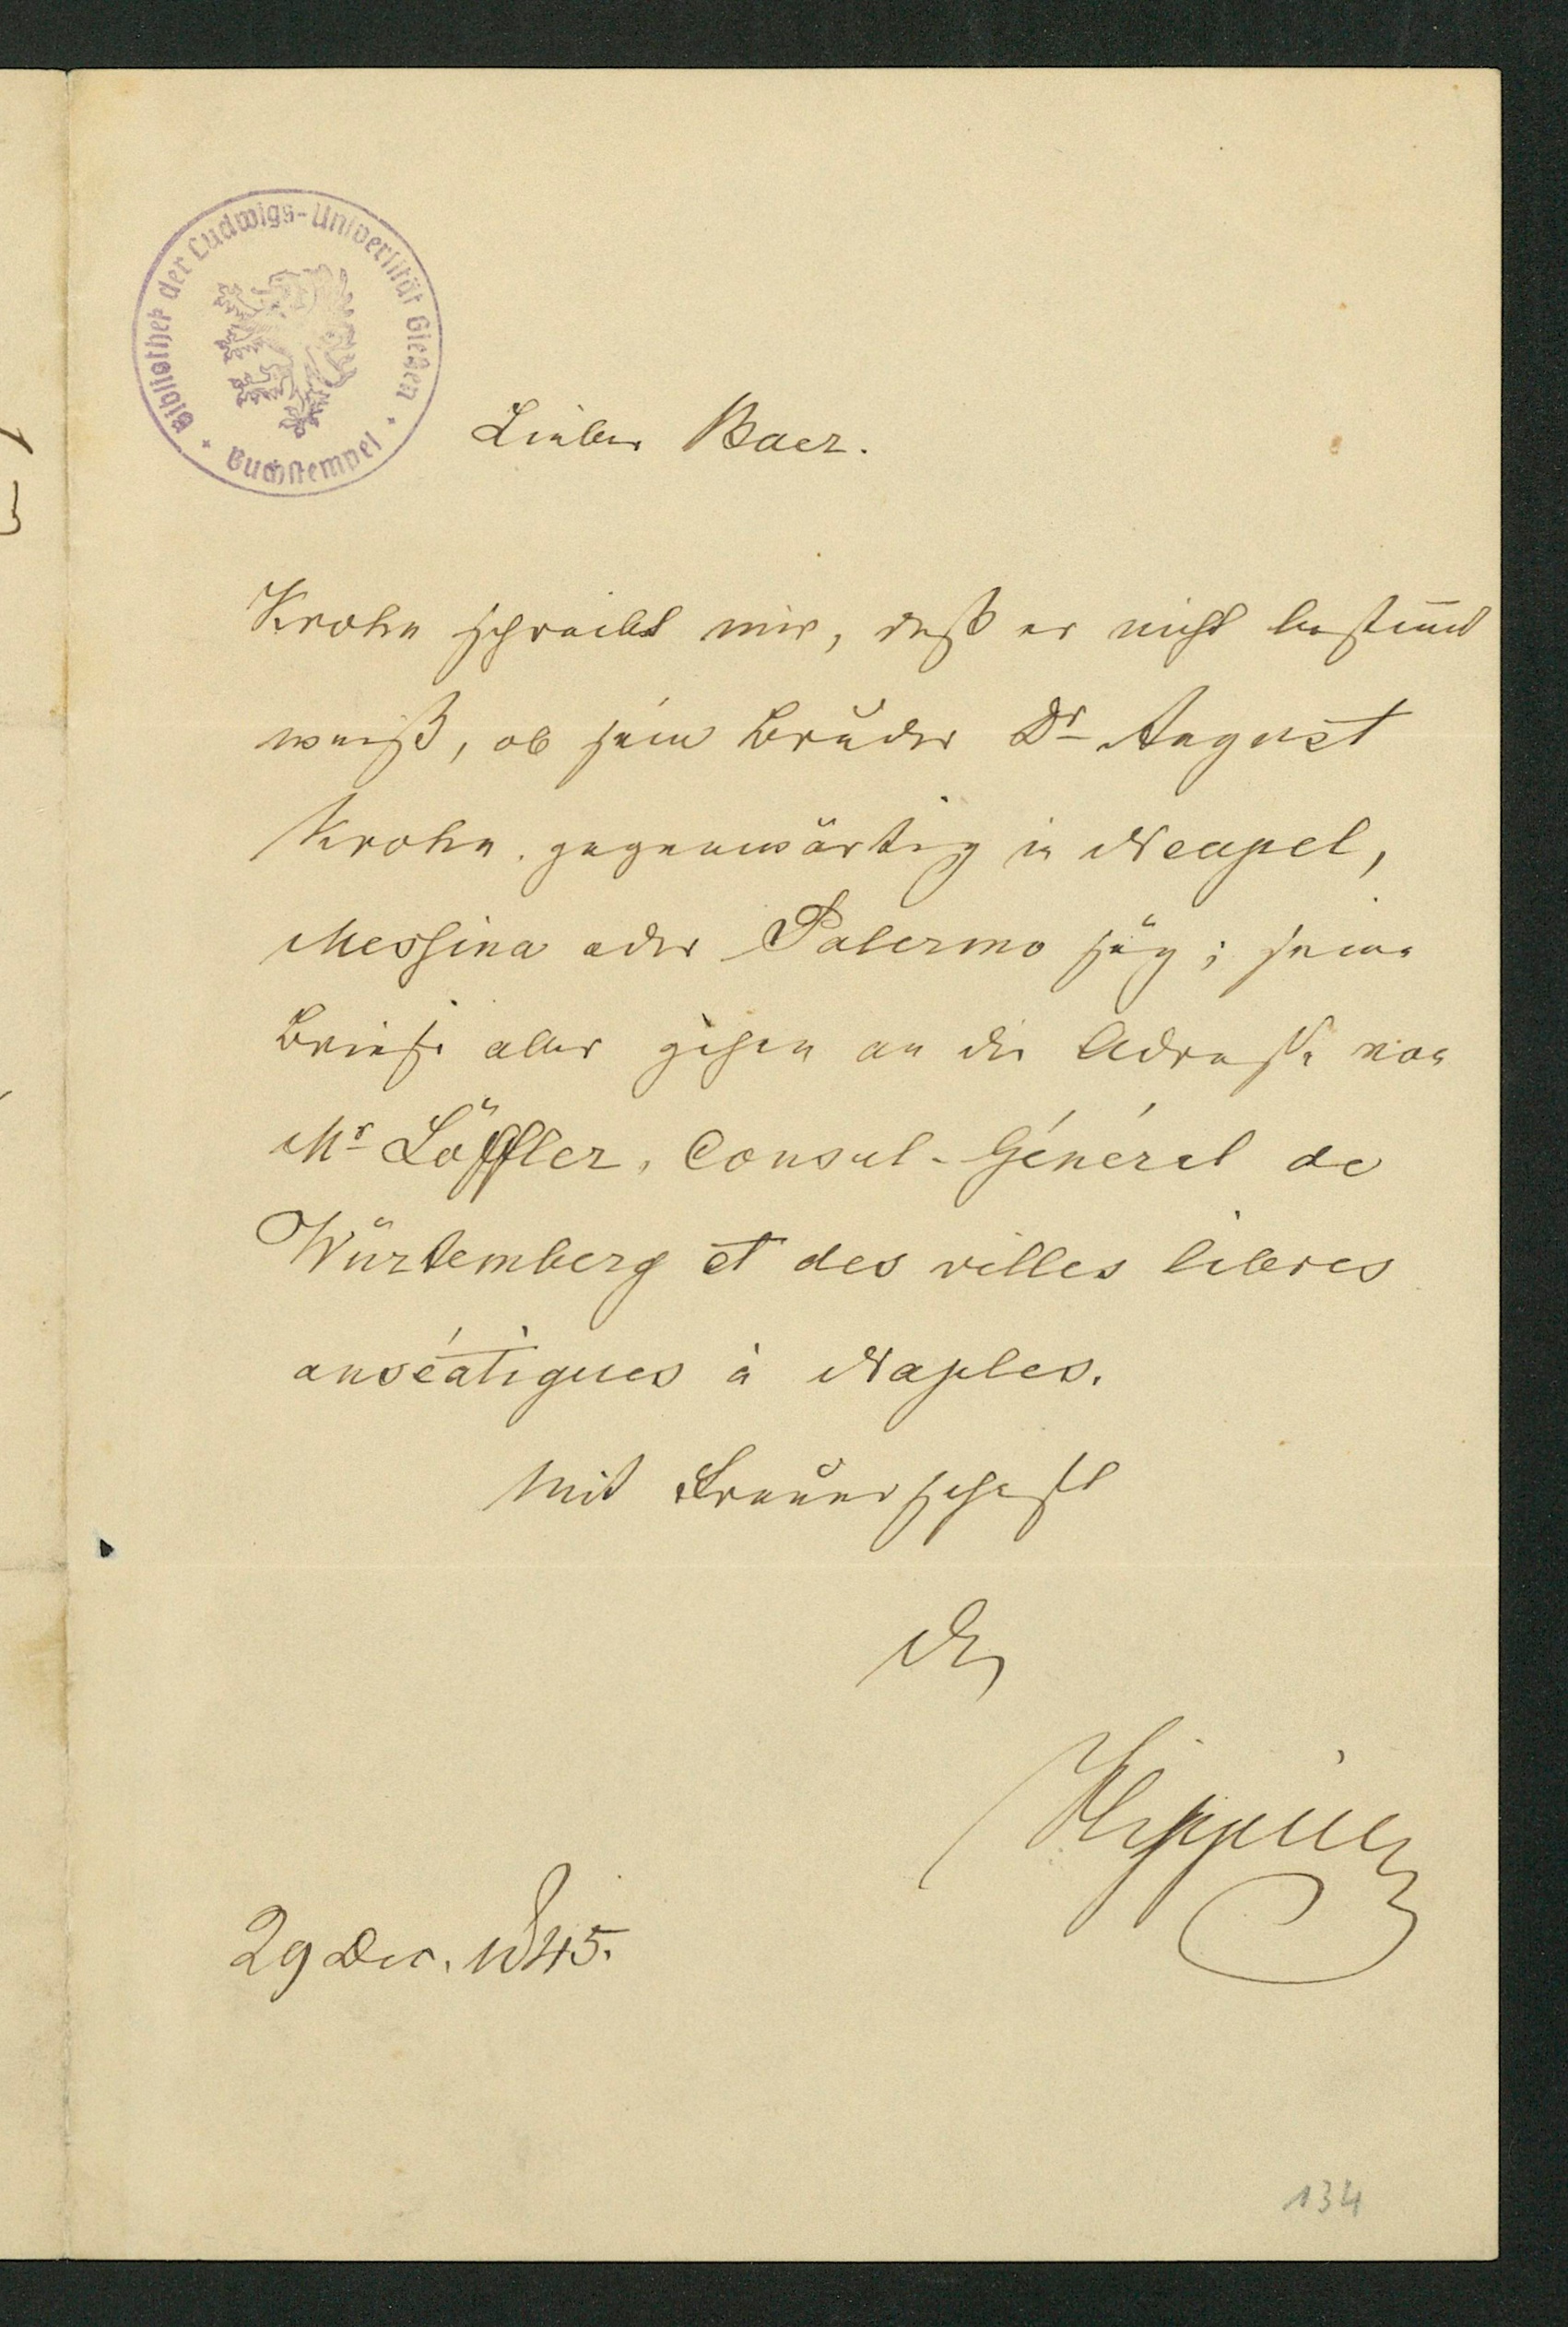 Bibliothek der Ludwigs-Universität Gießen
Buchstempel
Lieber Baer.
Krohn schreibt mir, daß er nicht bestim̅t
weiß, ob sein Bruder Dr August
Krohn gegenwärtig in Neapel,
Messina oder Palermo seÿ; seine
Briefe aber gehen an die Adresse von
Mr Löffler, Consul-Général de
Würtemberg et des villes libres
anséatiques à Naples.
Mit Freundschaft
Dein
29 Dec. 1845.
134